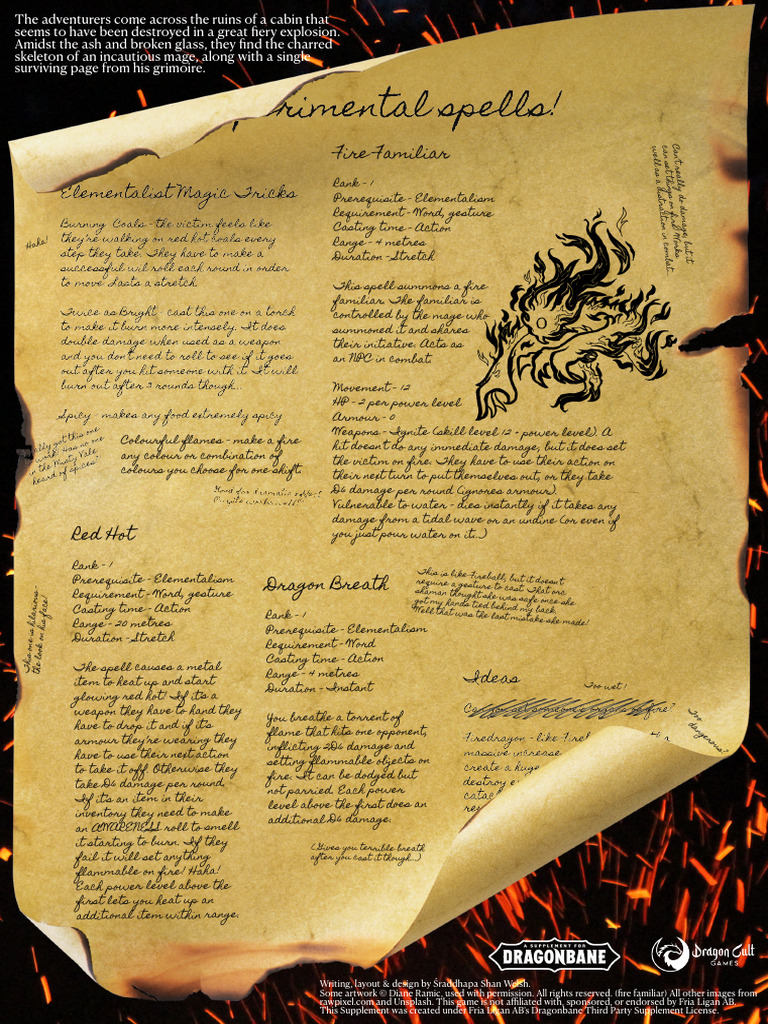 The adventurers come across the ruins of a cabin that
seems to have been destroyed in a great fiery explosion.
Amidst the ash and broken glass, they find the charred
skeleton of an incautious mage, along with a single
surviving page from his grimoire.
perimental spells!
Elementalist Magic Tricks
Haha!
Burning Coals - the victim feels like
they're walking on red hot coals every
step they take. They have to make a
successful wil roll each round in order
to move. Lasts a stretch.
Twice as Bright - cast this one on a torch
to make it burn more intensely. It does
double damage when used as a weapon
and you don't need to roll to see if it goes
out after you hit someone with it. It will
burn out after 3 rounds though...
Spicy - makes any food extremely spicy
got this one
work! Has no one
in the Misty Vale
heard of spices?
Colourful flames - make a fire
any colour or combination of
colours you choose for one shift
Good for dramatic
Red Hot
Rank - 1
Prerequisite - Elementalism
Requirement - Word, gesture
Casting time - Action
Range - 20 metres
Duration - Stretch
This one is hilarious -
the look on his face!
The spell causes a metal
item to heat up and start
glowing red hot! If it's a
weapon they have to hand they
have to drop it and if it's
armour they're wearing they
have to use their next action
to take it off. Otherwise they
take D6 damage per round.
If it's an item in their
inventory they need to make
an AWARENESS roll to smell
it starting to burn. If they
fail it will set anything
flammable on fire! Haha!
Each power level above the
first lets you heat up an
additional item within range.
Fire Familiar
Rank - 1
Prerequisite - Elementalism
Requirement - Word, gesture
Casting time - Action
Range - 4 metres
Duration - Stretch
Can't really do damage, but it
can set things on fire! Works
well as a distraction in combat.
This spell summons a fire
familiar. The familiar is
controlled by the mage who
summoned it and shares
their initiative. Acts as
an NPC in combat.
Movement - 12
HP - 2 per power level
Armour - 0
Weapons - Ignite (skill level 12 + power level). A
hit doesn't do any immediate damage, but it does set
the victim on fire. They have to use their action on
their next turn to put themselves out, or they take
D6 damage per round (ignores armour).
Vulnerable to water - dies instantly if it takes any
damage from a tidal wave or an undine (or even if
you just pour water on it...)
Dragon Breath
Rank - 1
Prerequisite - Elementalism
Requirement - Word
Casting time - Action
Range - 4 metres
Duration - Instant
This is like Fireball, but it doesn't
require a gesture to cast. That orc
shaman thought she was safe once she
got my hands tied behind my back.
Well that was the last mistake she made!
You breathe a torrent of
flame that hits one opponent,
inflicting 2D6 damage and
setting flammable objects on
fire. It can be dodged but
not parried. Each power
level above the first does an
additional D6 damage.
(Gives you terrible breath
after you cast it though...)
Ideas
Too wet!
fire?
Too
dangerous?
Firedragon - like Firef
massive increase
create a huge
destroy e
catac
re
A SUPPLEMENT FOR
DRAGONBANE
Dragon Cult
GAMES
Writing, layout & design by Śraddhapa Shan Welsh.
Some artwork © Diane Ramic, used with permission. All rights reserved. (fire familiar) All other images from
rawpixel.com and Unsplash. This game is not affiliated with, sponsored, or endorsed by Fria Ligan AB.
This Supplement was created under Fria Ligan AB's Dragonbane Third Party Supplement License.